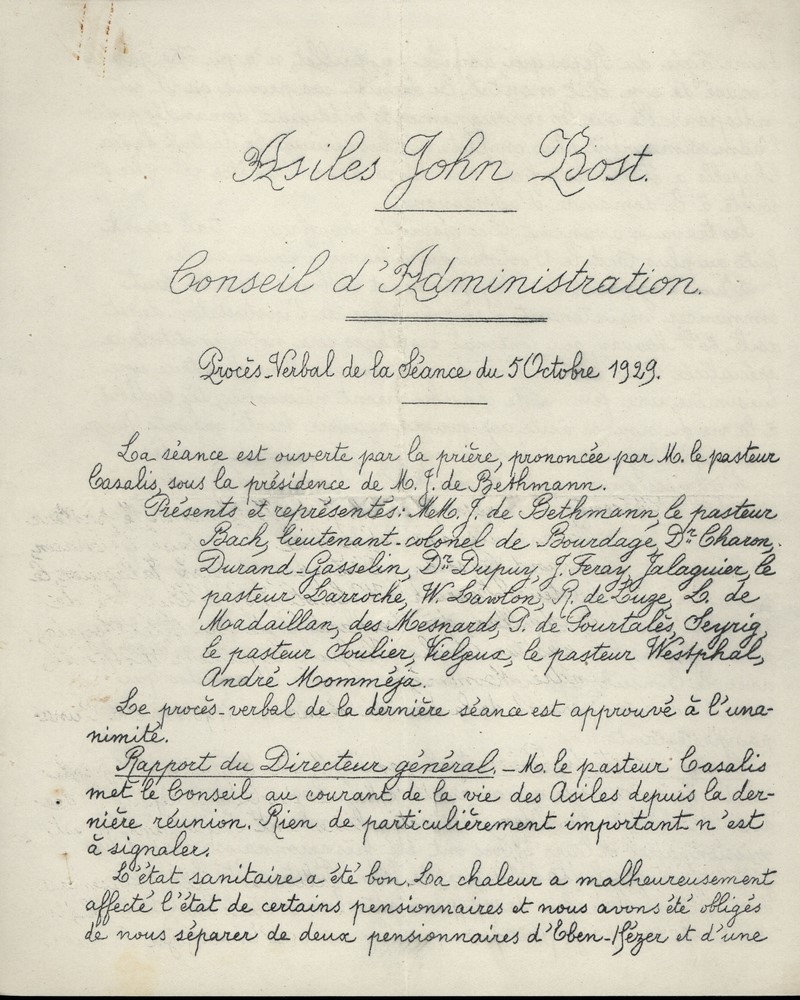 Asiles John Bost.
Conseil d'Administration.
Procès-Verbal de la Séance du 5 Octobre 1929.
La séance est ouverte par la prière, prononcée par M. le pasteur
Casalis, sous la présidence de M. J. de Bethmann.
Présents et représentés: MM. J. de Bethmann, le pasteur
Bach, lieutenant-colonel de Bourdage, Dr Charon,
Durand-Gasselin, Dr Dupuy, J. Feray, Jalaguier, le
pasteur Larroche, W. Lawton, R. de Luze, L. de
Madaillan, des Mesnards, P. de Pourtalès, Seyrig,
le pasteur Soulier, Vieljeux, le pasteur Westphal,
André Momméja.
Le procès-verbal de la dernière séance est approuvé à l'una-
nimité.
Rapport du Directeur général. - M. le pasteur Casalis
met le Conseil au courant de la vie des Asiles depuis la der-
nière réunion. Rien de particulièrement important n'est
à signaler.
L'état sanitaire a été bon. La chaleur a malheureusement
affecté l'état de certains pensionnaires et nous avons été obligés
de nous séparer de deux pensionnaires d'Eben-Hézer et d'une